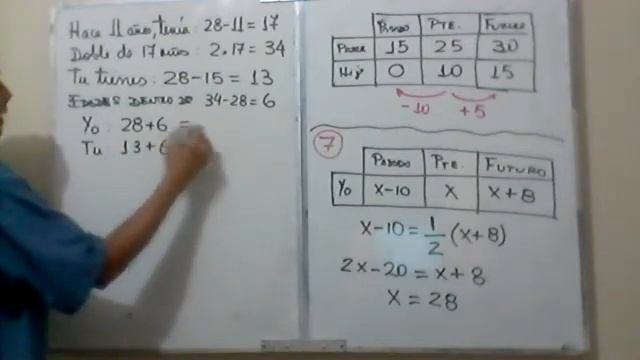 Hace 11 años, tenía: 28-11=17
Doble de 17 años: 2.17=34
Tu tienes: 28-15=13
34-28=6
Yo: 28+6 =
Tu: 13+6
Pasado Pre. Futuro
Padre 15 25 30
Hijo 0 10 15
-10 +5
7
Pasado Pre. Futuro
Yo x-10 x x+8
x-10=1/2(x+8)
2x-20=x+8
x=28